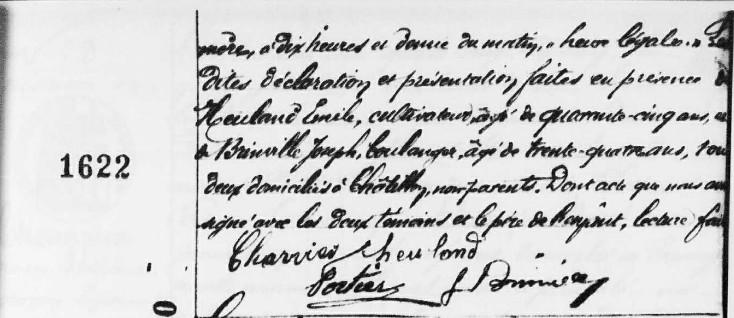 mère, à dix heures et demie du matin, "heure légale." Les
dites déclaration et présentation faites en présence de
Heuland Emile, cultivateur, âgé de quarante-cinq ans, et
de Brinville Joseph, boulanger, âgé de trente-quatre ans, tous
1622
deux domiciliés à Châtillon, non parents. Dont acte que nous avons
signé avec les deux témoins et le père de l'enfant, lecture faite
Charrier heuland
Portier J Brinville